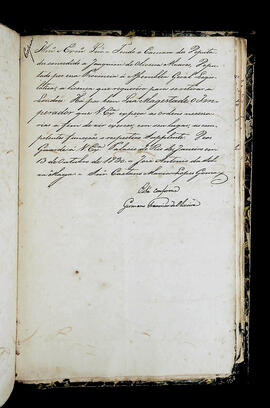 Illmo e Exmo Snr = Tendo a Camara dos Deputa-
dos concedido a Joaquim de Oliveira Alvares, Depu-
tado por esta Provincia á Assemblea Geral Legis-
lativa, a licença que requereo para se retirar a
Londres Há por bem Sua Magestade o Im-
perador que V. Exa expeça as ordens necessa-
rias a fim de vir exercer, em seu lugar, as com-
petentes funcções o respectivo Supplente. Deos
Guarde a V. Exa Palacio do Rio de Janeiro em
13 de Outubro de 1830. = José Antonio da Sil-
va Maya = Snr Caetano Maria Lopes Gama
Está conforme
Germano Francisco de Oliveira